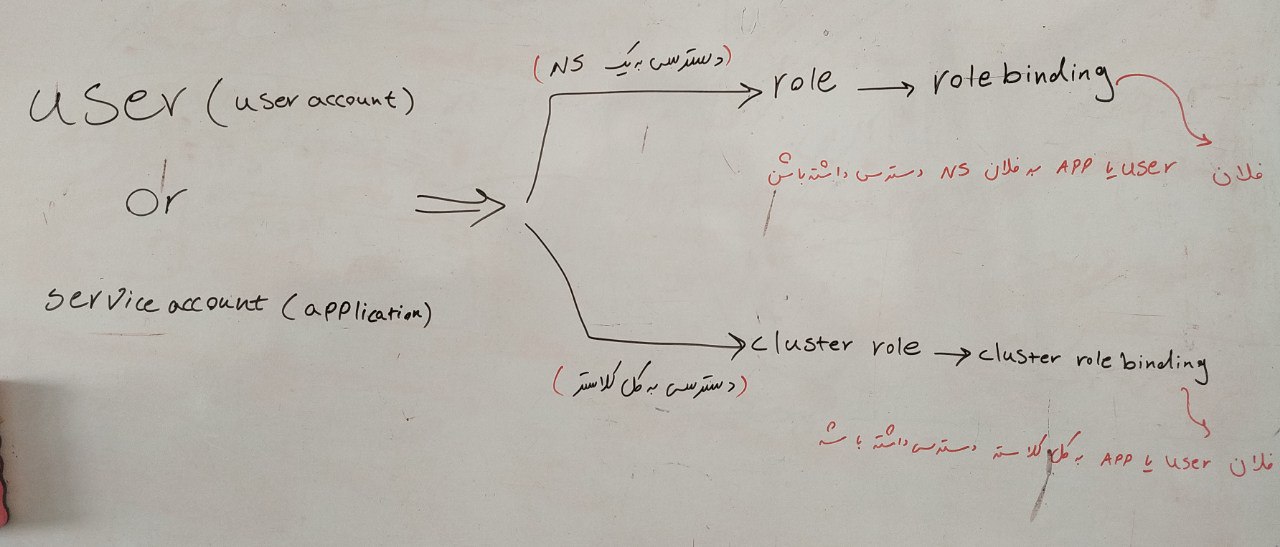 user (user account)
or
service account (application)
(دسترسی به یک NS)
role → role binding
فلان user یا APP به فلان NS دسترسی داشته باشن
(دسترسی به کل کلاستر)
cluster role → cluster role binding
فلان user یا APP به کل کلاستر دسترسی داشته باشه